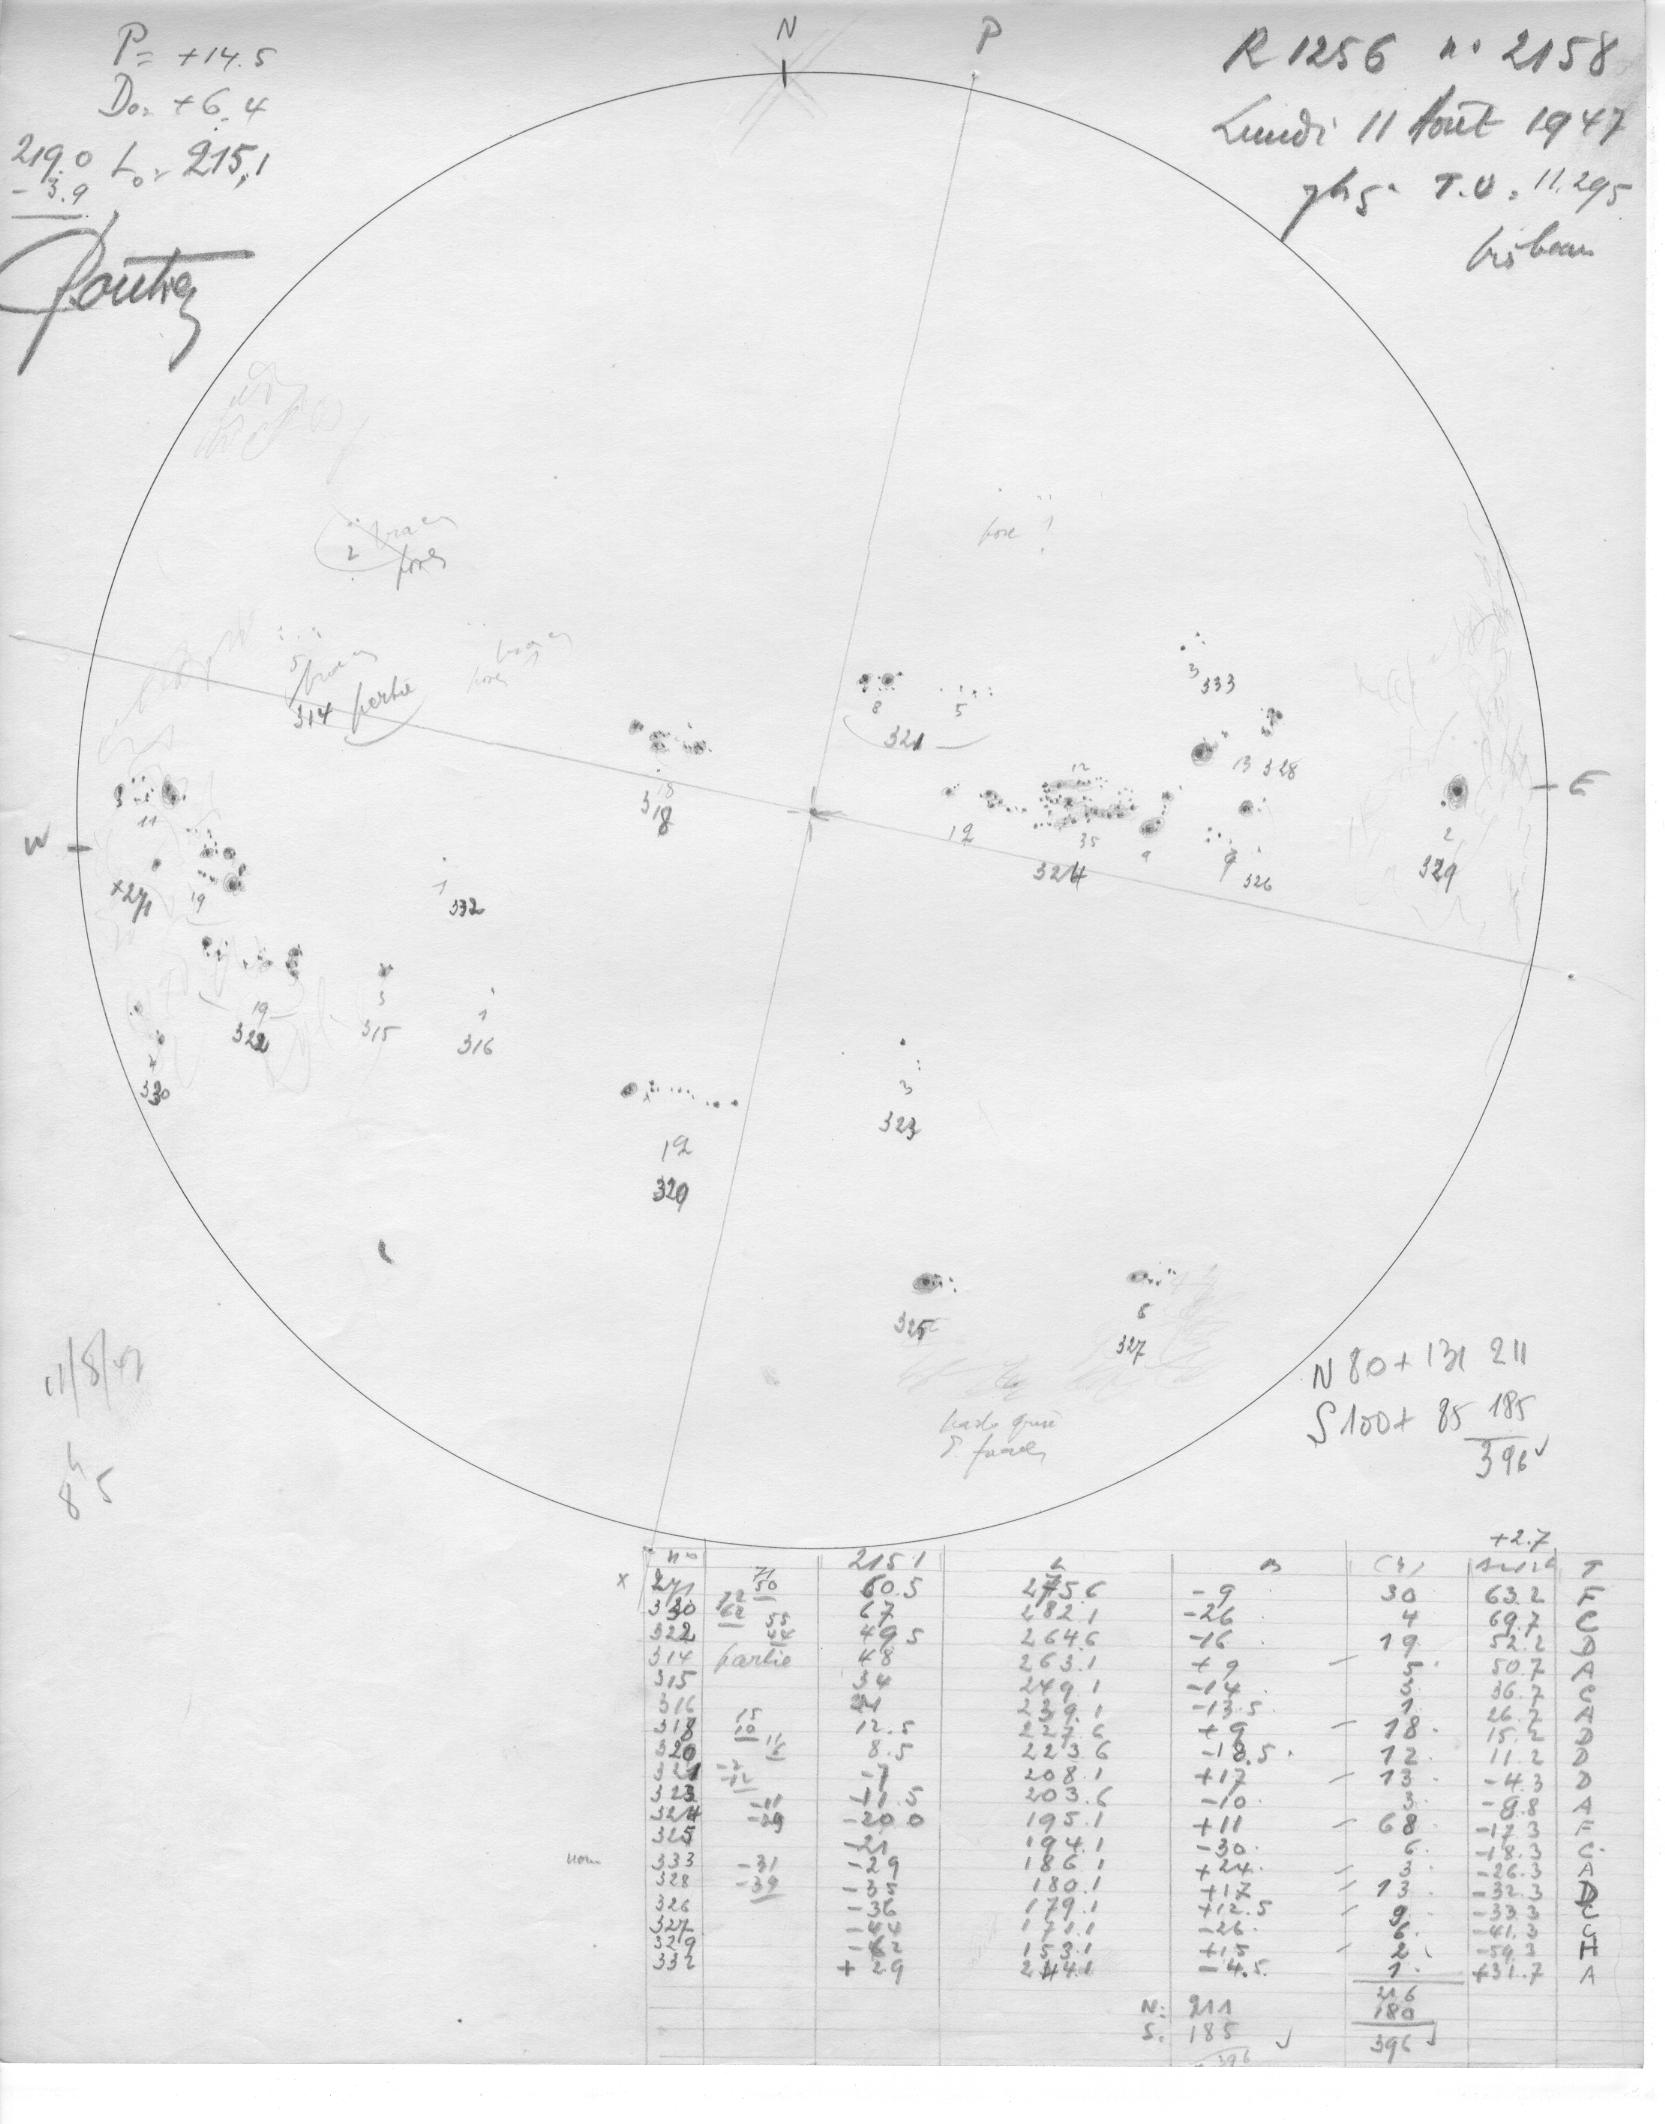 P= +14.5
Do= +6.4
219.0 Lo= 215,1
- 3.9
N
P
R 1256 n° 2158
Lundi 11 Août 1947
T.U. = 11.295
2
traces
pores
pore !
5
traces
314 partie
traces
pores
3
333
8
5
321
13 328
18
318
12
12
35
9
324
9
326
2
329
E
W
11
+271
19
1
332
19
322
3
315
1
316
4
330
3
323
12
320
325
6
327
11/8/47
8h 5
N 80 + 131 211
S 100 + 85 185
396
+2.7
n° 215 1 L B T
x 271 71 50 60.5 275.6 -9 30 63.2 F
330 72 62 67 282.1 -26 4 69.7 C
322 55 44 49.5 264.6 -16 19 52.2 D
314 partie 48 263.1 +9 5 50.7 A
315 34 249.1 -14 3 36.7 C
316 24 239.1 -13.5 1 26.7 A
318 15 10 12.5 227.6 +9 18 15.2 D
320 11 6 8.5 223.6 -18.5 12 11.2 D
321 -2 -12 -7 208.1 +17 13 -4.3 D
323 -11.5 203.6 -10 3 -8.8 A
324 -11 -29 -20 0 195.1 +11 68 -17.3 F
325 -21 194.1 -30 6 -18.3 C
333 -29 186.1 +24 3 -26.3 A
328 -31 -39 -35 180.1 +17 13 -32.3 D
326 -36 179.1 +12.5 9 -33.3 C
327 -44 171.1 -26 6 -41.3 C
329 -62 153.1 +15 2 -59.3 H
332 +29 244.1 -4.5 1 +31.7 A
216
N: 211 180
S: 185 396
396